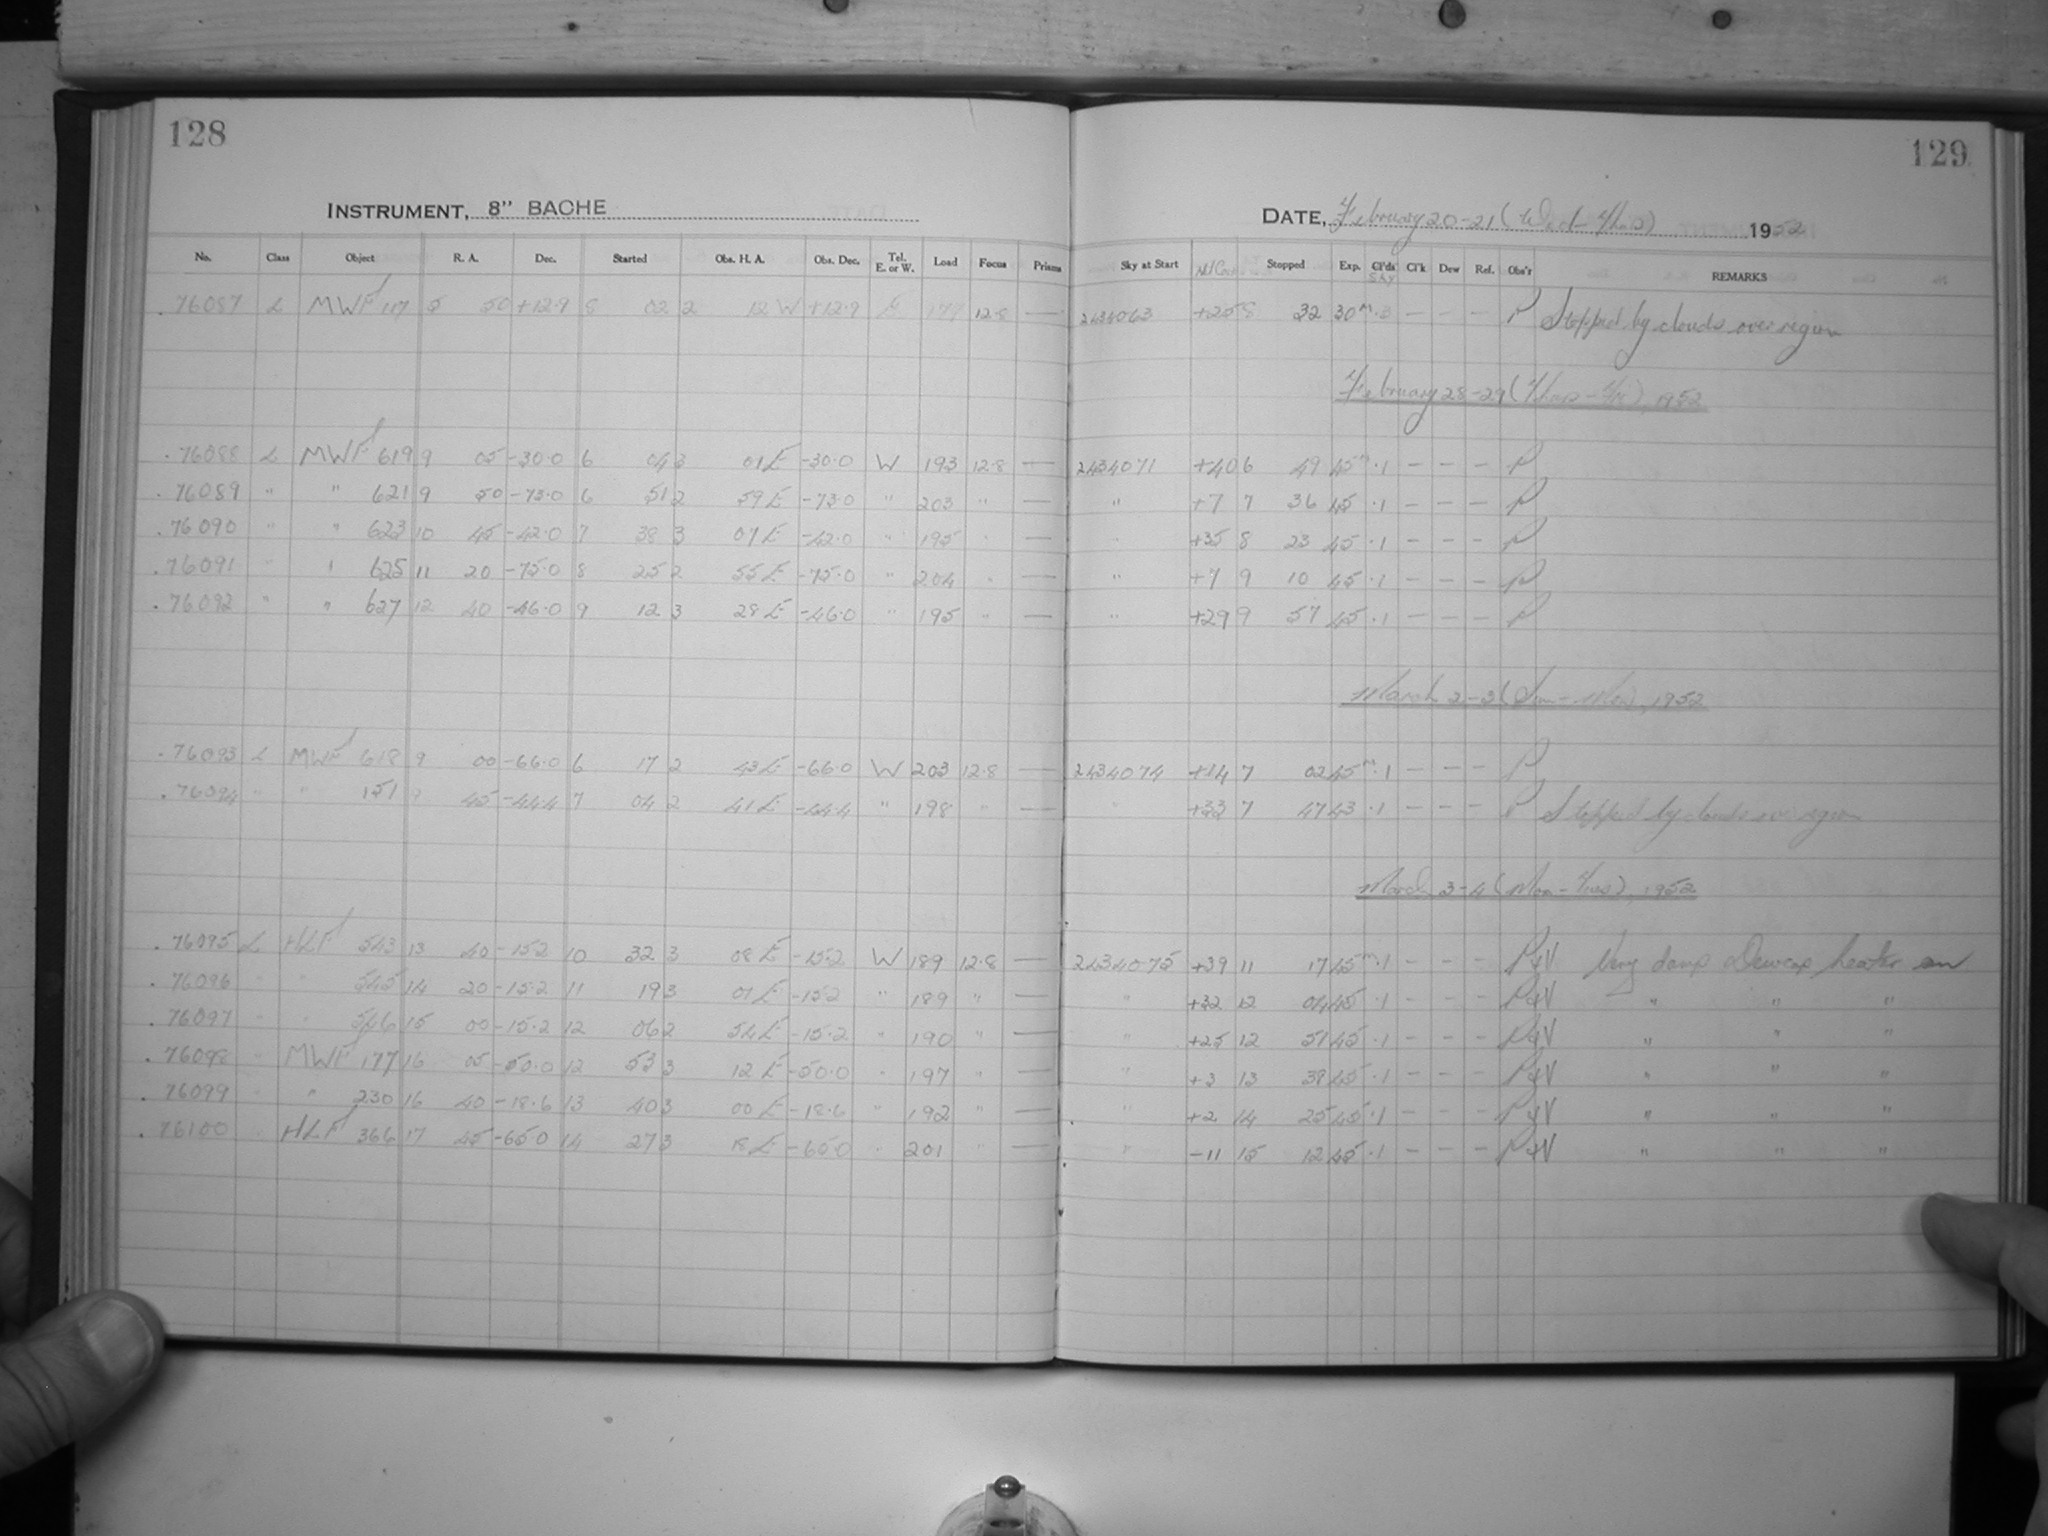 128
129
INSTRUMENT, 8" BACHE
DATE, February 20-21 (Wed-Thurs) 1952
No. Class Object R. A. Dec. Started Obs. H. A. Obs. Dec. Tel. E. or W. Load Focus Prisms Sky at Start Stopped Exp. Cl'ds Sky Cl'k Dew Ref. Obs'r REMARKS
76087 L MWF 117 5 50 +12.9 8 02 2 12 W +12.9 E 177 12.8 — 2434063 +25 8 32 30m .3 — — — P Stopped by clouds over region
February 28-29 (Thurs-Fri), 1952
76088 L MWF 619 9 05 -30.0 6 04 3 01 E -30.0 W 193 12.8 — 2434071 +40 6 49 45m .1 — — — P
76089 " " 621 9 50 -73.0 6 51 2 59 E -73.0 " 203 " — " +7 7 36 45 .1 — — — P
76090 " " 623 10 45 -42.0 7 38 3 07 E -42.0 " 195 " — " +35 8 23 45 .1 — — — P
76091 " " 625 11 20 -75.0 8 25 2 55 E -75.0 " 204 " — " +7 9 10 45 .1 — — — P
76092 " " 627 12 40 -46.0 9 12 3 28 E -46.0 " 195 " — " +29 9 57 45 .1 — — — P
March 2-3 (Sun-Mon), 1952
76093 L MWF 618 9 00 -66.0 6 17 2 43 E -66.0 W 203 12.8 — 2434074 +14 7 02 45m .1 — — — P
76094 " " 151 45 -44.4 7 04 2 41 E -44.4 " 198 " — " +33 7 47 43 .1 — — — P Stopped by clouds over region
March 3-4 (Mon-Tues), 1952
76095 L HLF 543 13 40 -15.2 10 32 3 08 E -15.2 W 189 12.8 — 2434075 +39 11 17 45m .1 — — — P&V Very damp Dewcap heater on
76096 " " 545 14 20 -15.2 11 19 3 01 E -15.2 " 189 " — " +32 12 04 45 .1 — — — P&V " " "
76097 " " 546 15 00 -15.2 12 06 2 54 E -15.2 " 190 " — " +25 12 51 45 .1 — — — P&V " " "
76098 " MWF 177 16 05 -50.0 12 53 3 12 E -50.0 " 197 " — " +3 13 38 45 .1 — — — P&V " " "
76099 " " 230 16 40 -18.6 13 40 3 00 E -18.6 " 192 " — " +2 14 25 45 .1 — — — P&V " " "
76100 " HLF 366 17 45 -65.0 14 27 3 18 E -65.0 " 201 " — " -11 15 12 45 .1 — — — P&V " " "